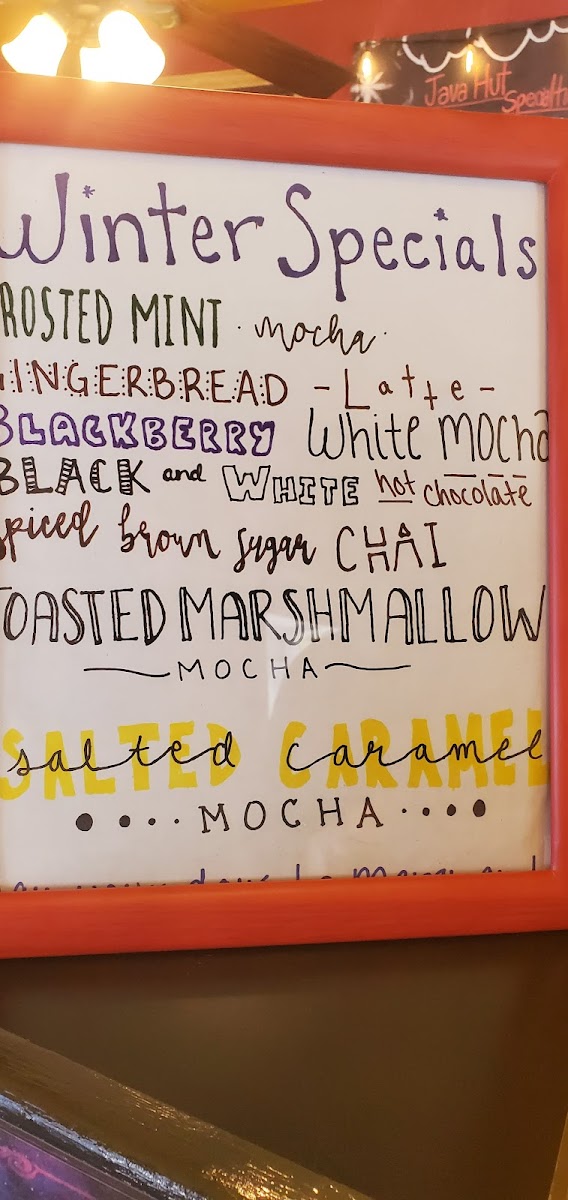 Java Hut
Winter Specials
ROSTED MINT · mocha ·
GINGERBREAD - Latte -
BLACKBERRY White MOCha
BLACK and WHITE hot chocolate
spiced brown sugar CHAI
TOASTED MARSHMALLOW
MOCHA
SALTED CARAMEL
salted caramel
MOCHA